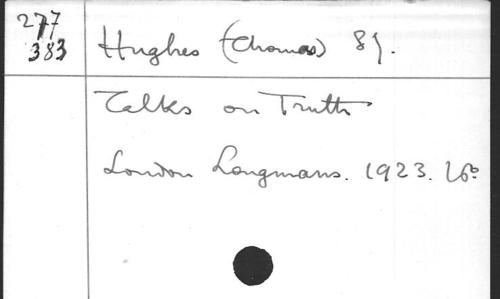 277
383
Hughes (Thomas) SJ.
Talks on Truth
London Longmans. 1923. 16º